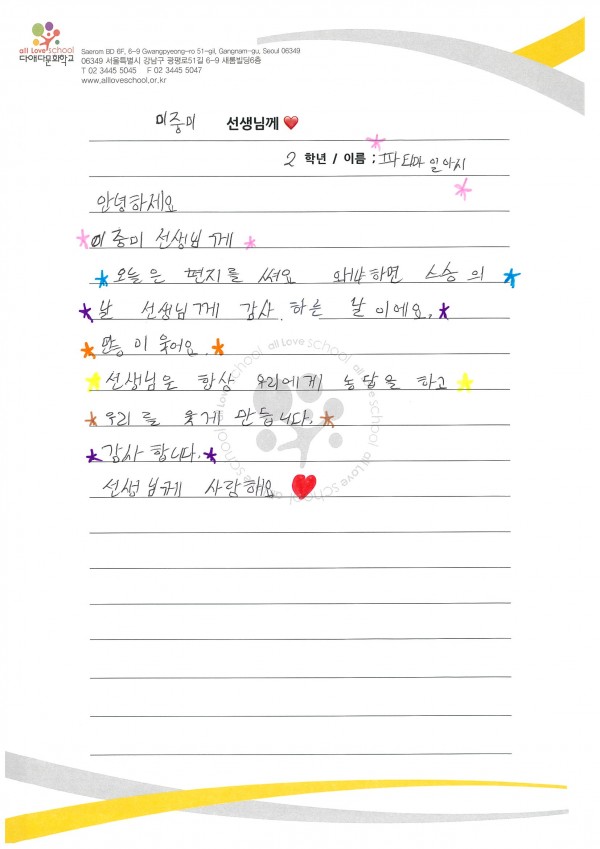 all Love school
다애다문화학교
Saerom BD 6F, 6-9 Gwangpyeong-ro 51-gil, Gangnam-gu, Seoul 06349
06349 서울특별시 강남구 광평로51길 6-9 새롬빌딩6층
T 02 3445 5045 F 02 3447 5047
www.allloveschool.or.kr
이중미 선생님께
2 학년 / 이름 : 파티마 일아시
안녕하세요
이중미 선생님께
오늘은 편지를 써요 왜냐하면 스승의
날 선생님께 감사.하는 날이에요.
이 웃어요.
선생님은 항상 우리에게 농담을 하고
우리를 웃게 만듭니다.
감사 합니다.
선생님께 사랑해요
all Love school all Love school all Love school